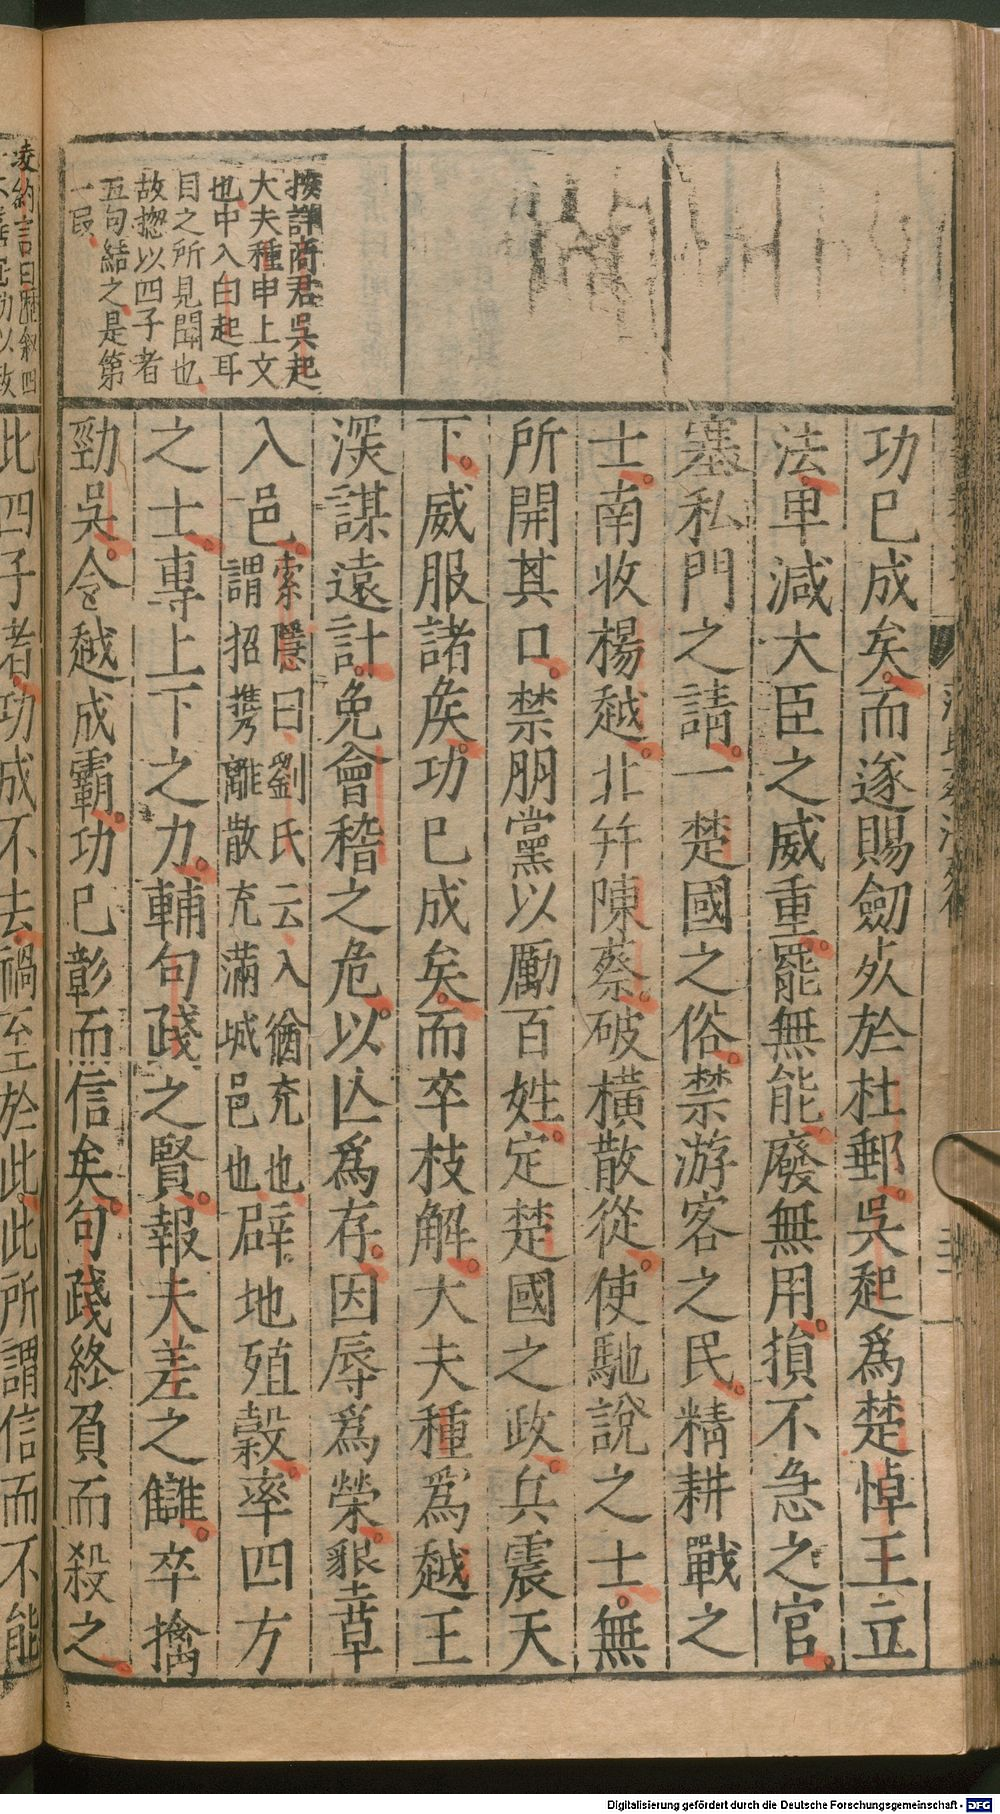 功已成矣而遂賜劒死於杜郵吳起爲楚悼王立
法卑減大臣之威重罷無能廢無用損不急之官
塞私門之請一楚國之俗禁游客之民精耕戰之
士南收楊越北幷陳蔡破橫散從使馳說之士無
所開其口禁朋黨以厲百姓定楚國之政兵震天
下威服諸矦功已成矣而卒枝解大夫種爲越王
深謀遠計免會稽之危以亾爲存因辱爲榮墾草
入邑
索隱曰劉氏云入猶充也
謂招攜離散充滿城邑也
辟地殖穀率四方
之士專上下之力輔句踐之賢報夫差之讎卒擒
勁吳令越成霸功已彰而信矣句踐終負而殺之
按詳商君吳起
大夫種申上文
也中入白起耳
目之所見聞也
故揔以四子者
五句結之是第
一叚
凌約言曰歷叙四
此四子者功成不去禍至於此此所謂信而不能
Digitalisierung gefördert durch die Deutsche Forschungsgemeinschaft - DFG